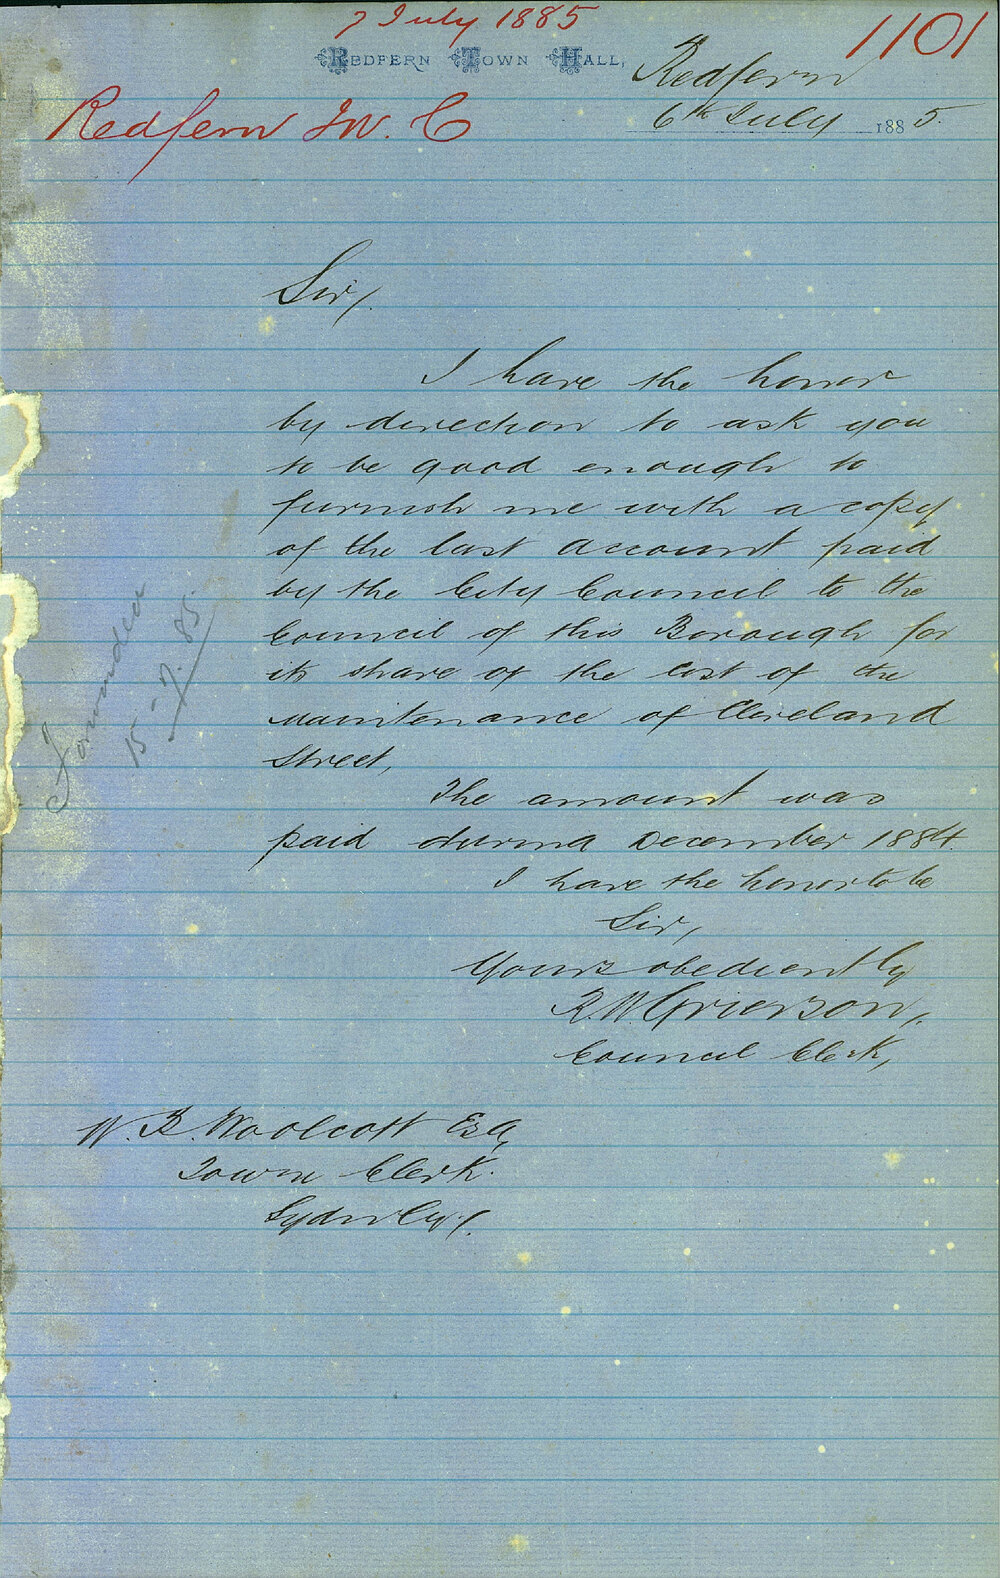 7 July 1885
1101
REDFERN TOWN HALL,
Redfern
Redfern M. C
6th July 1885.
Sir,
I have the honor
by direction to ask you
to be good enough to
furnish me with a copy
of the last account paid
by the City Council to the
Council of this Borough for
its share of the cost of the
maintenance of Cleveland
Street,
The amount was
paid during December 1884.
I have the honor to be
Sir,
Yours obediently
R.W. Grierson,
Council Clerk,
W. B. Woolcott Esq,
Town Clerk.
Sydney.
Forwarded
15-7-85.